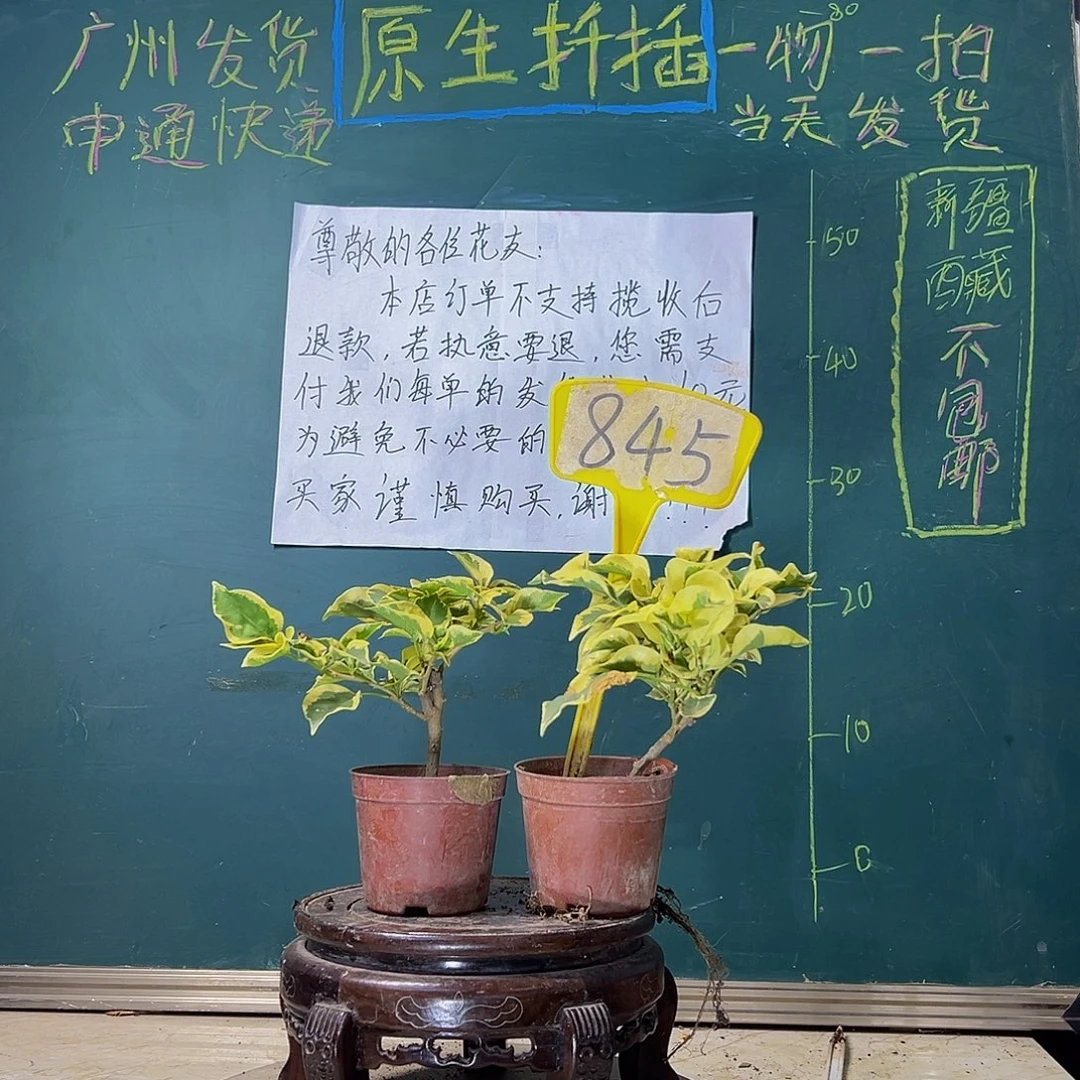 广州发货
申通快递
原生扦插
一物一拍
当天发货
80
50
40
30
20
10
0
新疆
西藏
不
包
邮
尊敬的各位花友:
本店订单不支持揽收后
退款,若执意要退,您需支
付我们每单的发
元
为避免不必要的
买家谨慎购买,谢
!!!
845